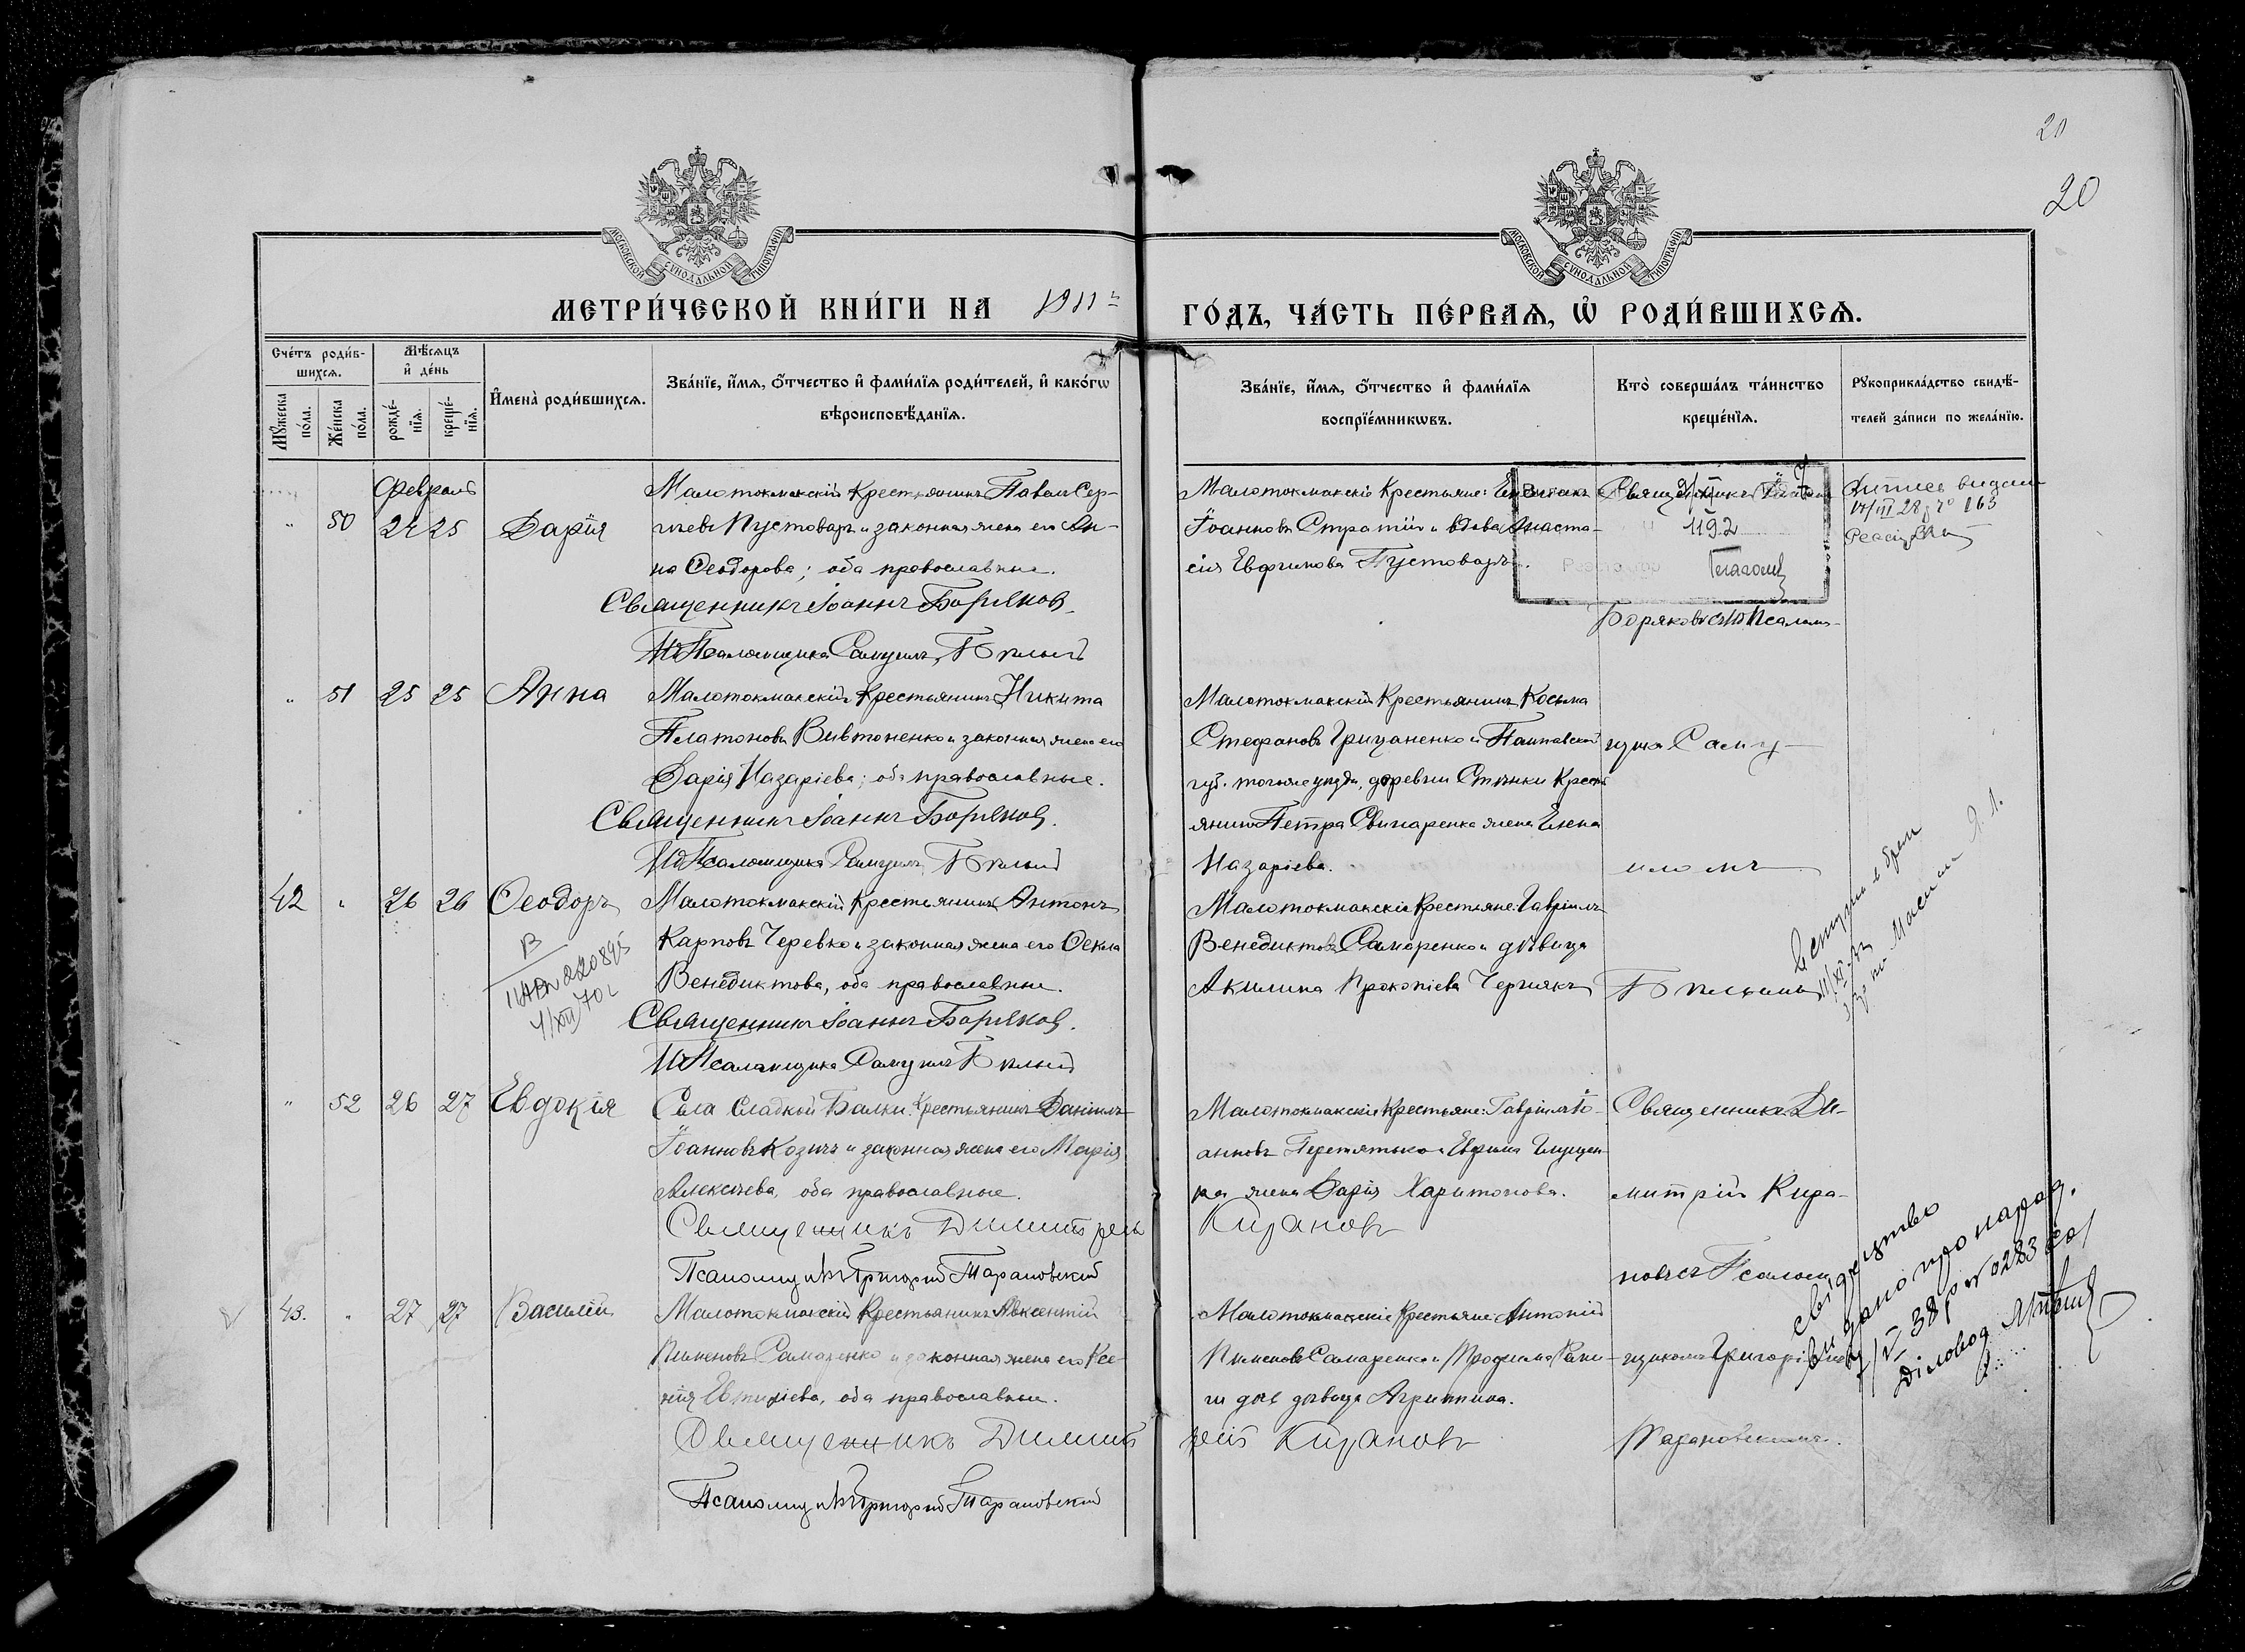 20
20
МОСКОВСКОЙ СѴНОДАЛЬНОЙ ТИПОГРАФІИ
МОСКОВСКОЙ СѴНОДАЛЬНОЙ ТИПОГРАФІИ
МЕТРИ́ЧЕСКОЙ КНИ́ГИ НА 1911
ГО́ДЪ, ЧА́СТЬ ПЕ́РВАЯ, Ѡ҆ РОДИ́ВШИХСѦ.
Сче́тъ роди́в-
шихсѧ.
Мꙋ́жеска по́ла.
Же́нска по́ла.
Мѣ́сѧцъ
и҆ де́нь
рожде́-
нїѧ.
креще́-
нїѧ.
И҆мена̀ роди́вшихсѧ.
Зва́нїе, и҆́мѧ, ѻ҆́тчество и҆ фами́лїѧ роди́телей, и҆ како́гѡ
вѣроисповѣ́данїѧ.
Зва́нїе, и҆́мѧ, ѻ҆́тчество и҆ фами́лїѧ
воспрїе́мникѡвъ.
Кто̀ соверша́лъ та́инство
креще́нїѧ.
Рꙋкоприкла́дство свидѣ́-
телей за́писи по жела́нїю.
Февраль
50 24 25 Дарія
Малотокмакскій Крестьянинъ Павелъ Сер-
гіевъ Пустоваръ и законная жена его Ан-
на Ѳеодорова; оба православные.
Священникъ Іоаннъ Боряковъ.
Псаломщика Самуилъ Бѣлый
Малотокмакскіе Крестьяне:
Іоанновъ Стратій и вдова Анаста-
сія Евфимова Пустоваръ.
1192
Боряковъ съ Псалом-
Витяг видано
17/III 28 р. № 163
51 25 25 Анна
Малотокмакскій Крестьянинъ Никита
Платоновъ Вивтоненко и законная жена его
Дарія Назаріева; оба православные.
Священникъ Іоаннъ Боряковъ.
Псаломщика Самуилъ Бѣлый
Малотокмакскій Крестьянинъ Косьма
Стефановъ Грицаненко и Полтавской
губ. того же уѣзда, деревни Стѣнки Кресть-
янина Петра Свинаренка жена Елена
Назаріева.
щика Саму-
иломъ
42 26 26 Ѳеодоръ
Малотокмакскій Крестьянинъ Антонъ
Карповъ Черевко и законная жена его Ѳекла
Венедиктова, оба православные.
Священникъ Іоаннъ Боряковъ.
Псаломщика Самуилъ Бѣлый
Малотокмакскіе Крестьяне: Гавріилъ
Венедиктовъ Самаренко и дѣвица
Акилина Прокопіева Чернякъ
Бѣлымъ
52 26 27 Евдокія
Села Сладкой Балки Крестьянинъ Даніилъ
Іоанновъ Козичъ и законная жена его Марія
Алексѣева, оба православные.
Священникъ Димитрій Кирановъ
Псаломщикъ Григорій Тарановскій
Малотокмакскіе Крестьяне: Гавріилъ Іо-
анновъ Перетятько и Евфима Глущен-
ка жена Дарія Харитонова.
Священникъ Ди-
митрій Кира-
новъ съ Псалом-
43. 27 27 Василій
Малотокмакскій Крестьянинъ Авксентій
Пименовъ Самаренко и законная жена его Ксе-
нія Евтихіева, оба православные.
Священникъ Димитрій Кирановъ
Псаломщикъ Григорій Тарановскій
Малотокмакскіе Крестьяне: Антоній
Пименовъ Самаренко и Трофима
дочь дѣвица Агриппина.
щикомъ Григоріемъ
Тарановскимъ.
свідоцтво
видано про народ.
Діловод